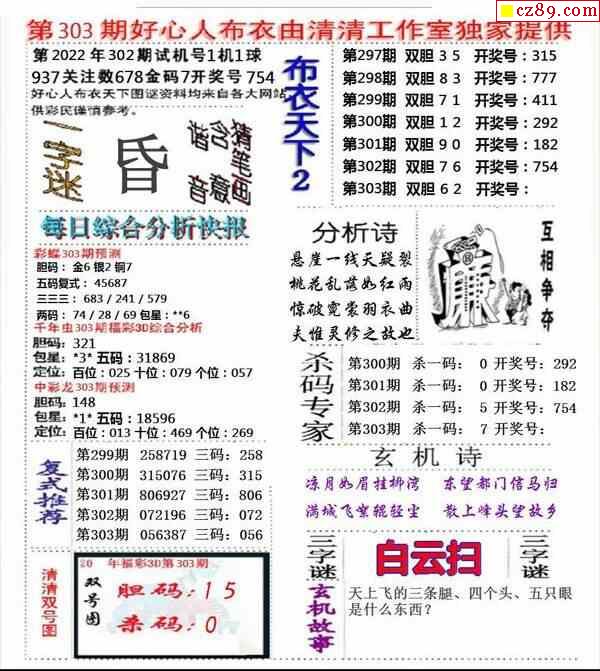 cz89.com
第303期好心人布衣由清清工作室独家提供
第2022年302期试机号1机1球
937关注数678金码7开奖号754
好心人布衣天下图谜资料均来自各大网站
供彩民谨慎参考。
一字谜
昏
猜笔画
含意
谐音
布衣天下2
第297期 双胆35 开奖号:315
第298期 双胆83 开奖号:777
第299期 双胆71 开奖号:411
第300期 双胆12 开奖号:292
第301期 双胆90 开奖号:182
第302期 双胆76 开奖号:754
第303期 双胆62 开奖号:
每日綜合分析快报
彩蝶303期预测
胆码:金6 银2 铜7
五码复式:45687
三三三:683/241/579
两码:74/28/69 包星:**6
千年虫303期福彩3D综合分析
胆码:321
包星:*3* 五码:31869
定位:百位:025 十位:079 个位:057
中彩龙303期预测
胆码:148
包星:*1* 五码:18596
定位:百位:013 十位:469 个位:269
分析诗
悬崖一线天疑裂
桃花乱落如红雨
惊破霓裳羽衣曲
夫惟灵修之故也
廉
互相争夺
杀码专家
第300期 杀一码: 0 开奖号:292
第301期 杀一码: 0 开奖号:182
第302期 杀一码: 5 开奖号:754
第303期 杀一码: 7 开奖号:
复式推荐
第299期 258719 三码:258
第300期 315076 三码:315
第301期 806927 三码:806
第302期 072196 三码:072
第303期 056387 三码:056
玄机诗
凉月如眉挂柳湾 东望都门信马归
满城飞絮辊轻尘 散上峰头望故乡
清清双号图
20 年福彩3D第303期
双号图
胆码:15
杀码:0
三字谜
白云扫
三字谜
玄机故事
天上飞的三条腿、四个头、五只眼
是什么东西?